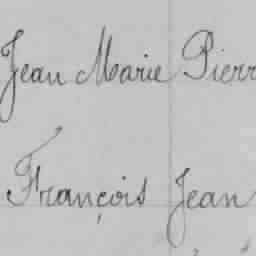 Jean Marie Pierr
François Jean